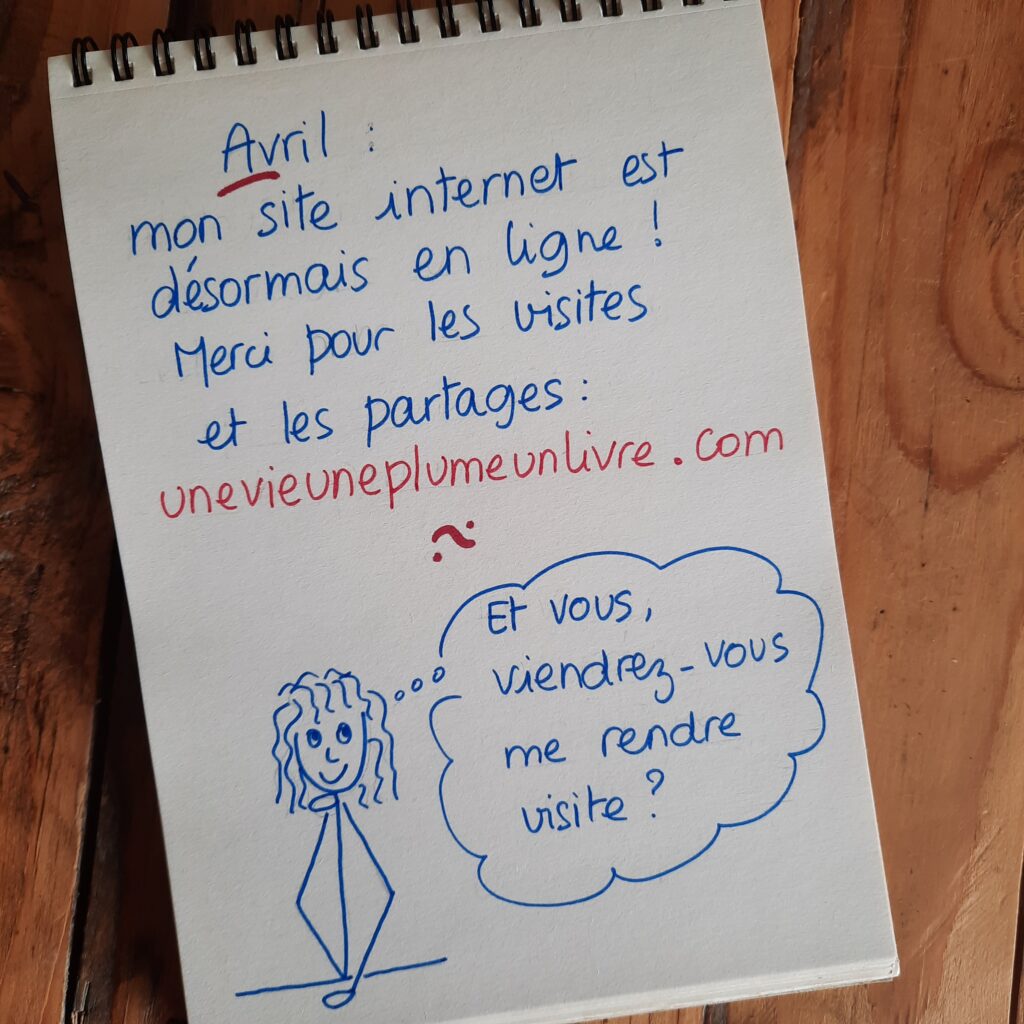 Avril :
mon site internet est
désormais en ligne !
Merci pour les visites
et les partages :
unevieuneplumeunlivre.com
Et vous,
viendrez-vous
me rendre
visite ?